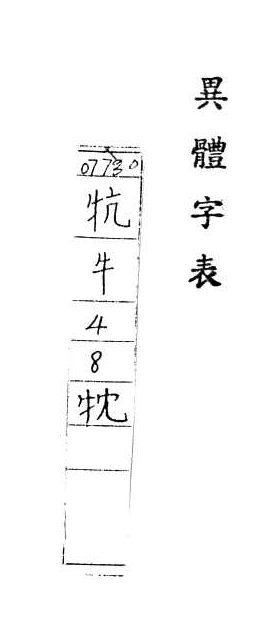 異體字表
07730
牨
牛
4
8